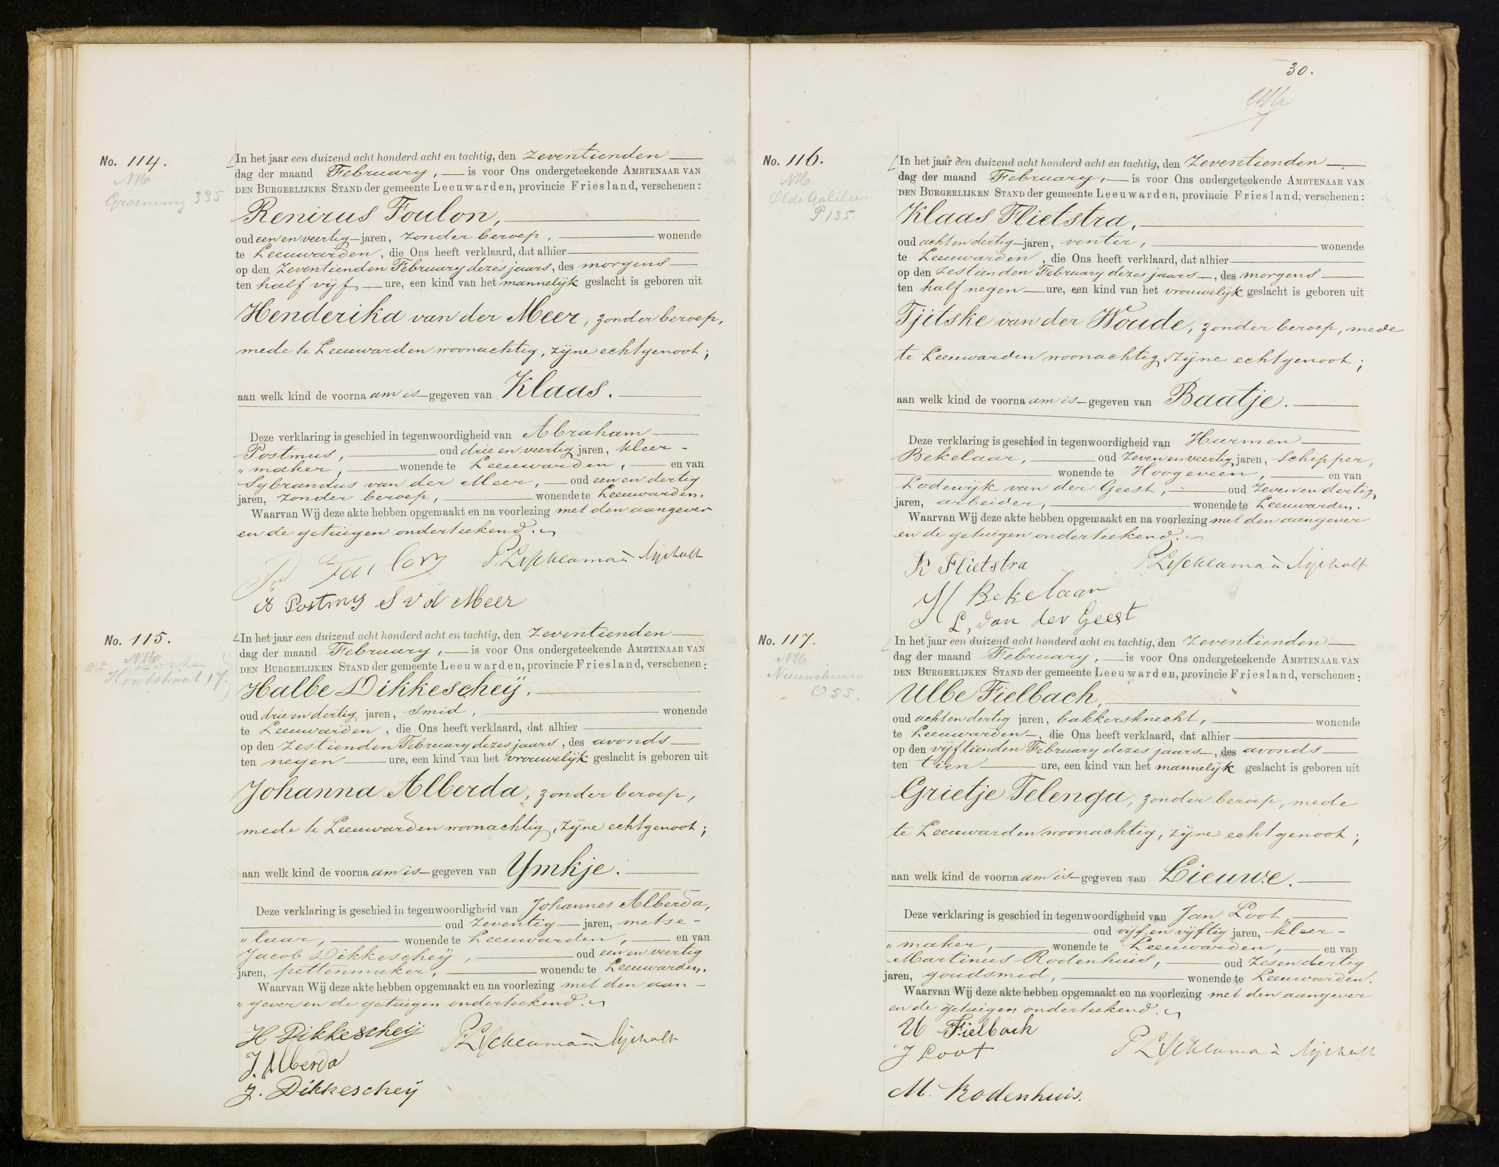 No. 114.
NH.
Groening 335
In het jaar een duizend acht honderd acht en tachtig, den zeventienden
dag der maand February, is voor Ons ondergeteekende AMBTENAAR VAN
DEN BURGERLIJKEN STAND der gemeente Leeuwarden, provincie Friesland, verschenen:
Renirus Foulon,
oud een en veertig jaren, zonder beroep, wonende
te Leeuwarden, die Ons heeft verklaard, dat alhier
op den zeventienden February dezes jaars, des morgens
ten half vijf ure, een kind van het mannelijk geslacht is geboren uit
Henderika van der Meer, zonder beroep,
mede te Leeuwarden woonachtig, zijne echtgenoot;
aan welk kind de voornaam is gegeven van Klaas.
Deze verklaring is geschied in tegenwoordigheid van Abraham
Postmus, oud drie en veertig jaren, kleer-
„maker, wonende te Leeuwarden, en van
Sybrandus van der Meer, oud een en dertig
jaren, zonder beroep, wonende te Leeuwarden.
Waarvan Wij deze akte hebben opgemaakt en na voorlezing met den aangever
en de getuigen onderteekend.
R Foulon P Lycklama à Nijeholt
A Postmus S v d Meer
No. 115.
NH.
Houtstraat 17.
In het jaar een duizend acht honderd acht en tachtig, den zeventienden
dag der maand February, is voor Ons ondergeteekende AMBTENAAR VAN
DEN BURGERLIJKEN STAND der gemeente Leeuwarden, provincie Friesland, verschenen:
Halbe Dikkescheij.
oud drie en dertig jaren, smid, wonende
te Leeuwarden, die Ons heeft verklaard, dat alhier
op den zestienden February dezes jaars, des avonds
ten negen ure, een kind van het vrouwelijk geslacht is geboren uit
Johanna Alberda, zonder beroep,
mede te Leeuwarden woonachtig, zijne echtgenoot;
aan welk kind de voornaam is gegeven van Ymkje.
Deze verklaring is geschied in tegenwoordigheid van Johannes Alberda,
oud zeventig jaren, metse-
„laar, wonende te Leeuwarden, en van
Jacob Dikkescheij, oud een en veertig
jaren, pettenmaker, wonende te Leeuwarden.
Waarvan Wij deze akte hebben opgemaakt en na voorlezing met den aan-
„gever en de getuigen onderteekend.
H Dikkescheij P Lycklama à Nijeholt
J. Alberda
J. Dikkescheij
30.
No. 116.
NH.
Olde Galileen
P 135.
In het jaar een duizend acht honderd acht en tachtig, den zeventienden
dag der maand February, is voor Ons ondergeteekende AMBTENAAR VAN
DEN BURGERLIJKEN STAND der gemeente Leeuwarden, provincie Friesland, verschenen:
Klaas Flietstra,
oud acht en dertig jaren, venter, wonende
te Leeuwarden, die Ons heeft verklaard, dat alhier
op den zestienden February dezes jaars, des morgens
ten half negen ure, een kind van het vrouwelijk geslacht is geboren uit
Tjitske van der Woude, zonder beroep, mede
te Leeuwarden woonachtig, zijne echtgenoot;
aan welk kind de voornaam is gegeven van Baatje.
Deze verklaring is geschied in tegenwoordigheid van Harmen
Bekelaar, oud zeven en veertig jaren, schipper,
wonende te Hoogeveen, en van
Lodewijk van der Geest, oud zeven en dertig
jaren, arbeider, wonende te Leeuwarden.
Waarvan Wij deze akte hebben opgemaakt en na voorlezing met den aangever
en de getuigen onderteekend.
K Flietstra P Lycklama à Nijeholt
H Bekelaar
L, van der Geest
No. 117.
NH.
Nieuweburen
O 55.
In het jaar een duizend acht honderd acht en tachtig, den zeventienden
dag der maand February, is voor Ons ondergeteekende AMBTENAAR VAN
DEN BURGERLIJKEN STAND der gemeente Leeuwarden, provincie Friesland, verschenen:
Ulbe Fielbach,
oud acht en dertig jaren, bakkersknecht, wonende
te Leeuwarden, die Ons heeft verklaard, dat alhier
op den vijftienden February dezes jaars, des avonds
ten tien ure, een kind van het mannelijk geslacht is geboren uit
Grietje Telenga, zonder beroep, mede
te Leeuwarden woonachtig, zijne echtgenoot;
aan welk kind de voornaam is gegeven van Lieuwe.
Deze verklaring is geschied in tegenwoordigheid van Jan Loot,
oud vijf en vijftig jaren, kleer-
„maker, wonende te Leeuwarden, en van
Martinus Rodenhuis, oud zes en dertig
jaren, goudsmid, wonende te Leeuwarden.
Waarvan Wij deze akte hebben opgemaakt en na voorlezing met den aangever
en de getuigen onderteekend.
U Fielbach
J Loot P Lycklama à Nijeholt
M. Rodenhuis.